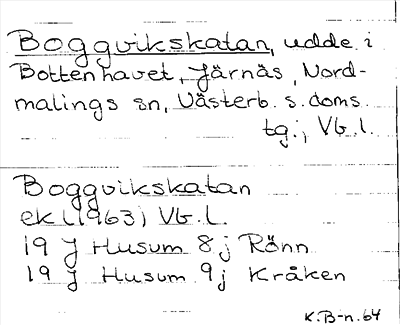 Boggvikskatan, udde i
Bottenhavet, Järnäs, Nord-
malings sn, Västerb. s. doms.
tg., Vb. l.
Boggvikskatan
ek (1963) Vb. L.
19 J Husum 8j Rönn
19 J Husum 9j Kråken
K.B-n.64